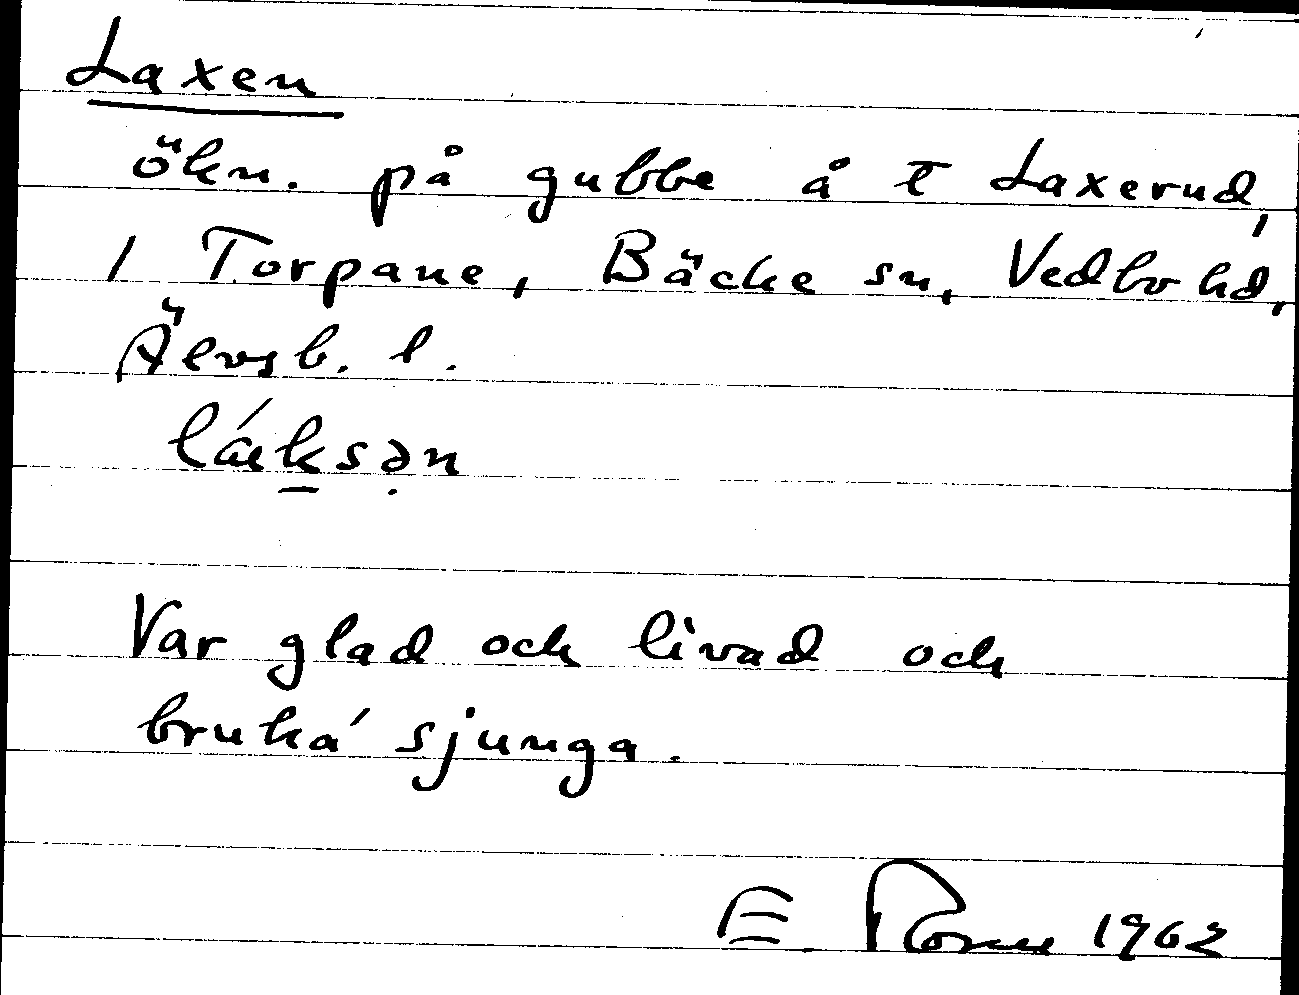 Laxen
ökn. på gubbe å t̄ Laxerud,
1 Torpane, Bäcke sn, Vedbo hd,
Älvsb. l.
Var glad och livad och
bruka' sjunga.
E. 1962